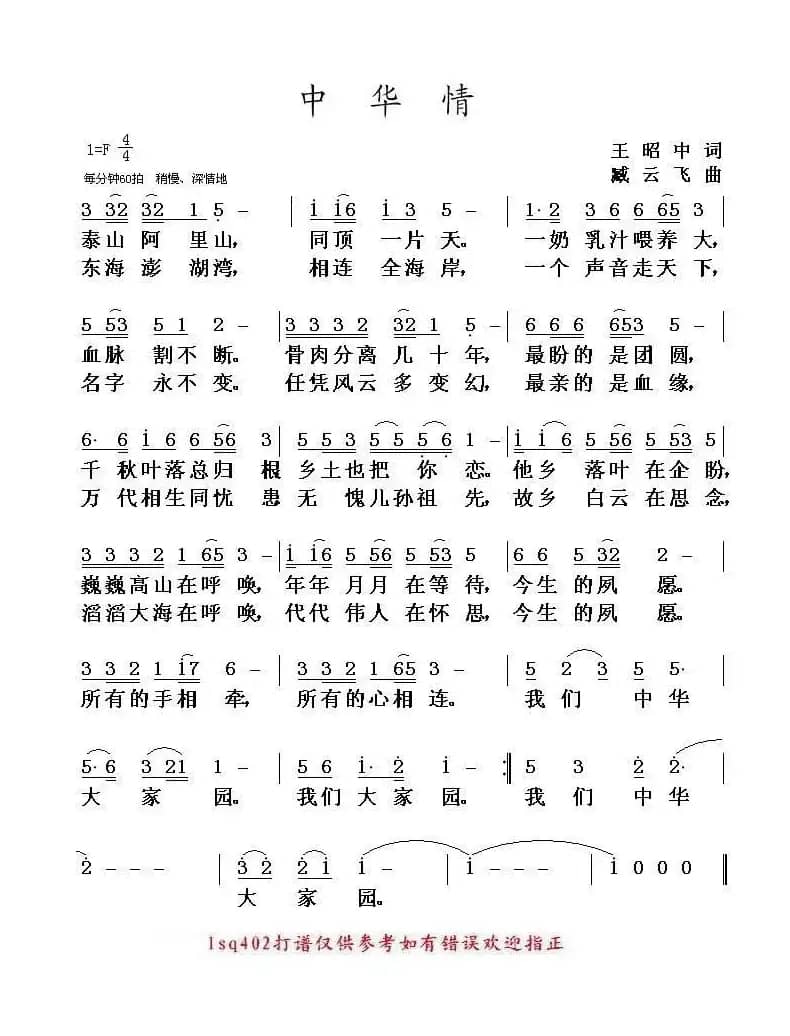 中 华 情
1=F 4/4
王 昭 中 词
每分钟60拍 稍慢、深情地
臧 云 飞 曲
3 32 32 1 5 – | i i6 i 3 5 – | 1· 2 3 6 6 65 3 |
泰山 阿 里山, 同顶 一片 天。 一奶 乳汁喂养 大,
东海 澎 湖湾, 相连 全海 岸, 一个 声音走天 下,
5 53 5 1 2 – | 3 3 3 2 32 1 5 – | 6 6 6 653 5 – |
血脉 割不 断。 骨肉分离 几 十 年, 最盼的 是团 圆,
名字 永不 变。 任凭风云 多 变 幻, 最亲的 是血 缘,
6· 6 i 6 6 56 3 | 5 5 53 5 5 5 6 1 – | i i 6 5 56 5 53 5 |
千 秋叶落总归 根 乡土也把 你 恋。他乡 落叶在企 盼,
万 代相生同忧 患 无 愧儿孙祖 先, 故乡 白云在思 念,
3 3 3 2 1 65 3 – | i i6 5 56 5 53 5 – | 6 6 5 32 2 – |
巍巍高山在呼 唤, 年年 月月 在等 待, 今生 的夙 愿。
滔滔大海在呼 唤, 代代 伟人 在怀 思, 今生 的夙 愿。
3 3 2 3 i7 6 – | 3 3 2 1 65 3 – | 5 2 3 5 5· |
所有的手相 牵, 所有的心相连。 我 们 中 华
5· 6 3 21 1 – | 5 6 i· 2 i – :‖ 5 3 2 2· |
大 家 园。 我们 大 家 园。 我 们 中 华
2 – – – | 3 2 2 i i – | i – – – | i 0 0 0 ‖
大 家 园。
lsq402打谱仅供参考如有错误欢迎指正